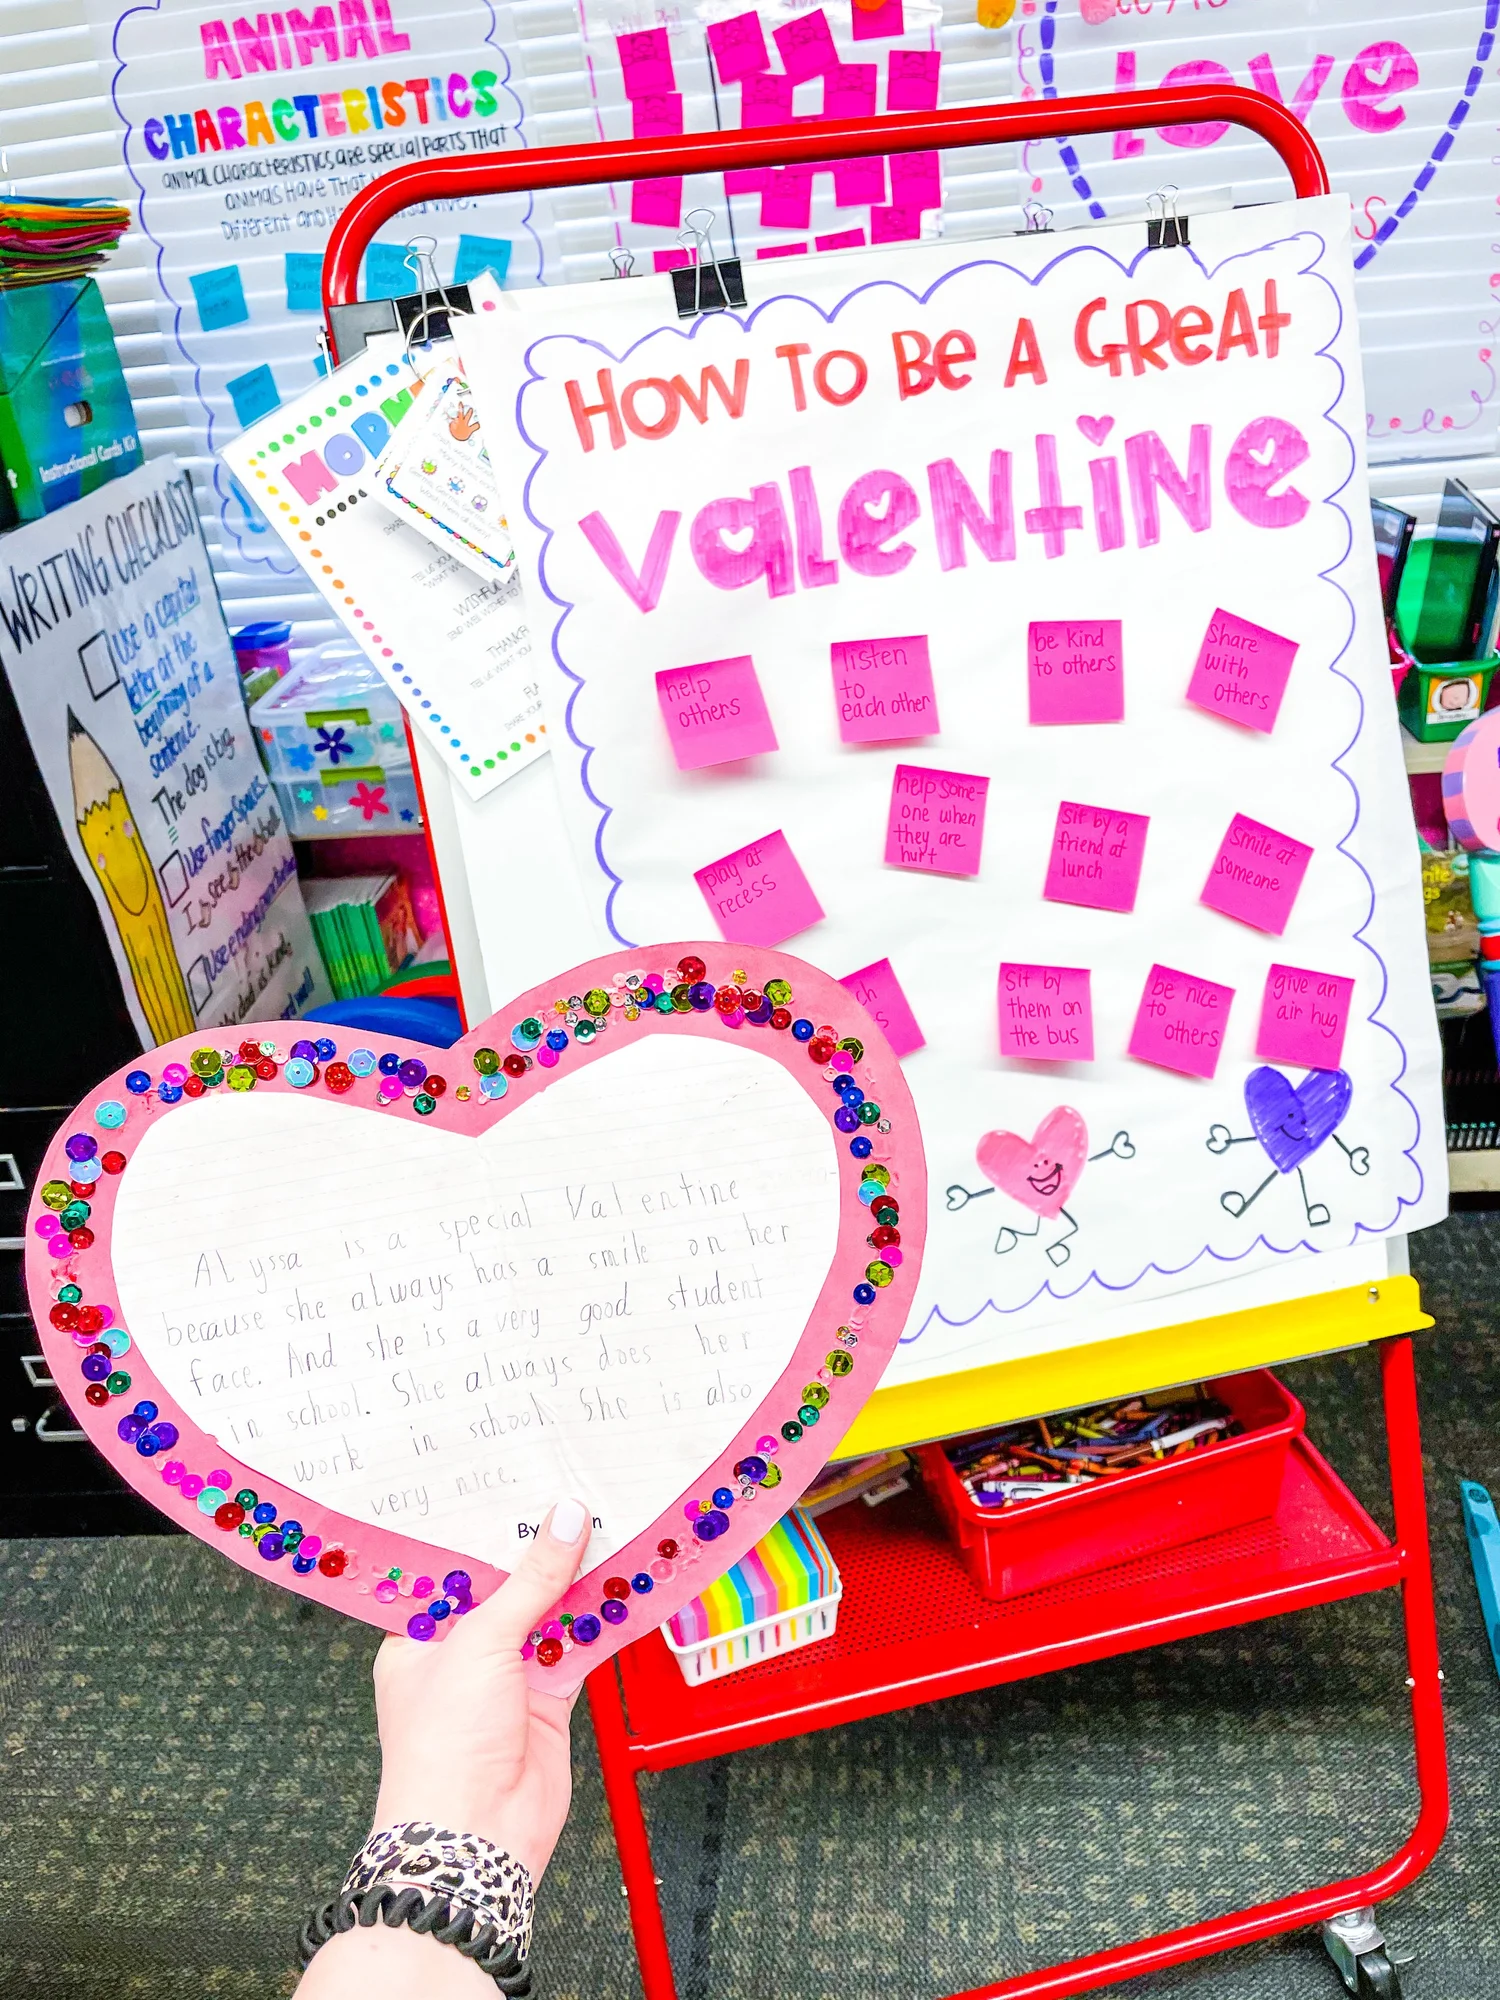 ANIMAL
CHARACTERISTICS
ANIMAL CHARACTERISTICS ARE SPECIAL PARTS THAT
ANIMALS HAVE THAT
Different and
LOVE
Instructional Cards Kit
WRITING CHECKLIST
Use a capital
letter at the
beginning of a
sentence.
The dog is big.
Use finger spaces.
I see the ball.
Use ending
HOW TO Be A GReAt
ValeNtiNe
help
others
listen
to
each other
be kind
to others
Share
with
others
play at
recess
help some-
one when
they are
hurt
sit by a
friend at
lunch
Smile at
someone
ch
s
sit by
them on
the bus
be nice
to
others
give an
air hug
ALyssa is a special Valentine
because she always has a smile on her
face. And she is a very good student
in school. She always does her
work in school. She is also
very nice.
By n